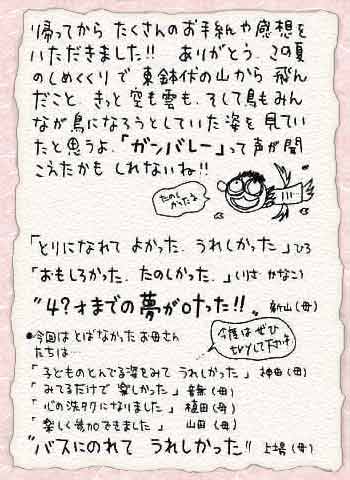 帰ってから たくさんのお手紙や感想を
いただきました!! ありがとう。この夏
のしめくくりで 東鉢伏の山から 飛ん
だこと、きっと空も雲も、そして鳥もみん
なが鳥になろうとしていた姿を見てい
たと思うよ。「ガンバレー」って声が聞
こえたかも しれないね!!
たのし
かったよ
「とりになれて よかった、うれしかった」ひろ
「おもしろかった、たのしかった。」(りさ かなこ)
"4?才までの夢がかなった!!" 新山(母)
●今回はとばなかったお母さん
たちは…
今度はぜひ
「子どものとんでる姿をみて うれしかった」神田(母)
「みてるだけで 楽しかった」 (母)
「心の洗タクになりました」植田(母)
「楽しく参加できました」 山田(母)
"バスにのれて うれしかった" (母)